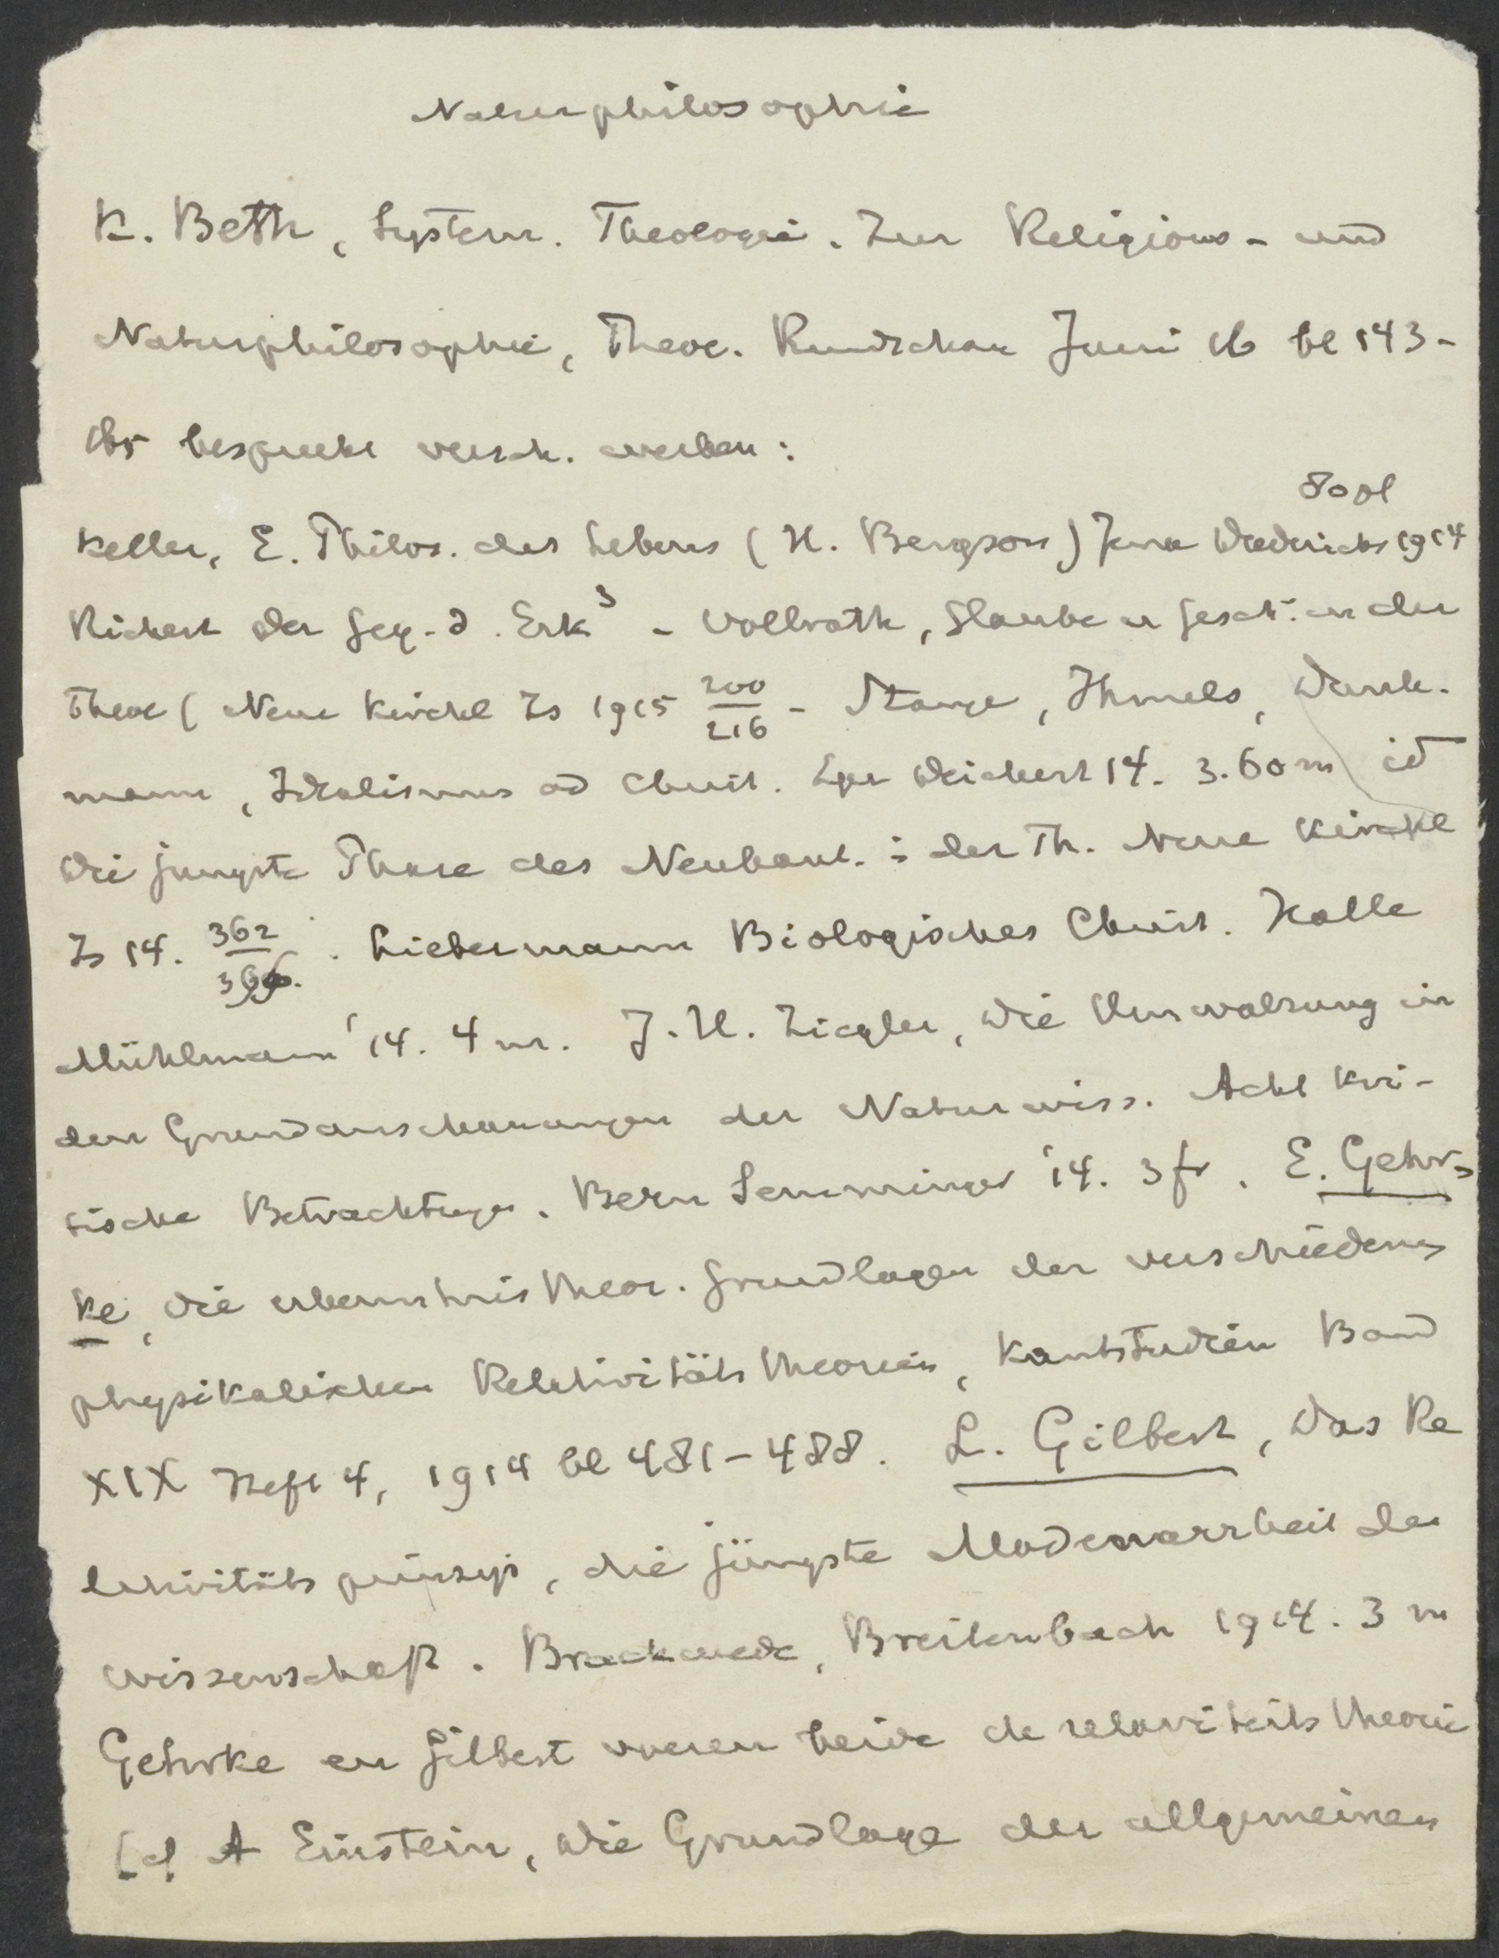 Naturphilosophie
K. Beth, System. Theologie. Zur Religions- und
Naturphilosophie, Theol. Rundschau Juni 16 bl 143-
165 bespreekt versch. werken:
80 pf
Keller, E. Philos. des Lebens (H. Bergson) Jena Diederichs 1914
Rickert Der Geg. d. Erk³ - Vollrath, Glaube u Gesch. in der
Theol (Neue Kirchl Zs 1915 200/216 - Stange, Ihmels, Dunk-
mann, Idealismus od Christ. Lpz Deichert 14. 3.60 m id
Die jungste Phase des Neukant. i der Th. Neue Kirchl
Zs 14. 362/396. Liebermann Biologisches Christ. Halle
Mühlmann '14. 4 m. J. H. Ziegler, Die Umwälzung in
den Grundanschauungen der Naturwiss. Acht kri-
tische Betrachtungen. Bern Semminger '14. 3 fr. E. Gehr-
ke, die erkenntnistheor. Grundlagen der verschiedenen
physikalischen Relativitäts theorien, Kantstudien Band
XIX Heft 4, 1914 bl 481-488. L. Gilbert, Das Re
lativitäts prinzip, die jüngste Modenarrheit der
wissenschaft. Brackwede, Breitenbach 1914. 3 m
Gehrke en Gilbert beide de relativiteits theorie
[cf A Einstein, Die Grundlage der allgemeinen